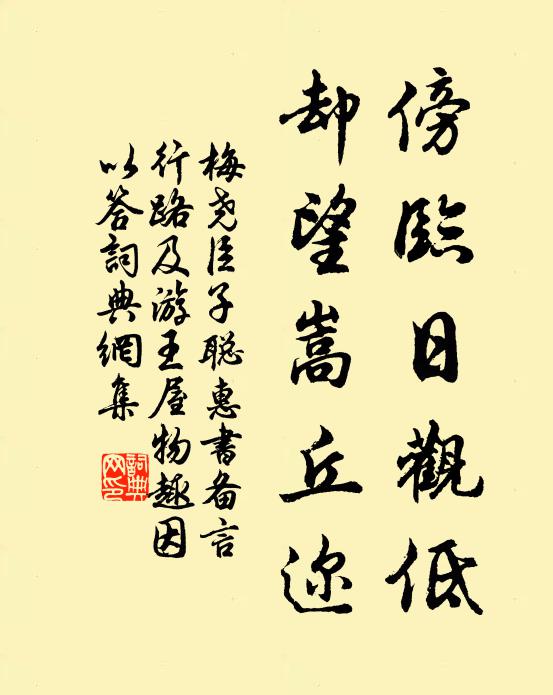 傍臨日觀低
却望嵩丘迩
梅尧臣子聪惠書备言
行路及游王屋物趣因
以答詞典網集
詞典网印